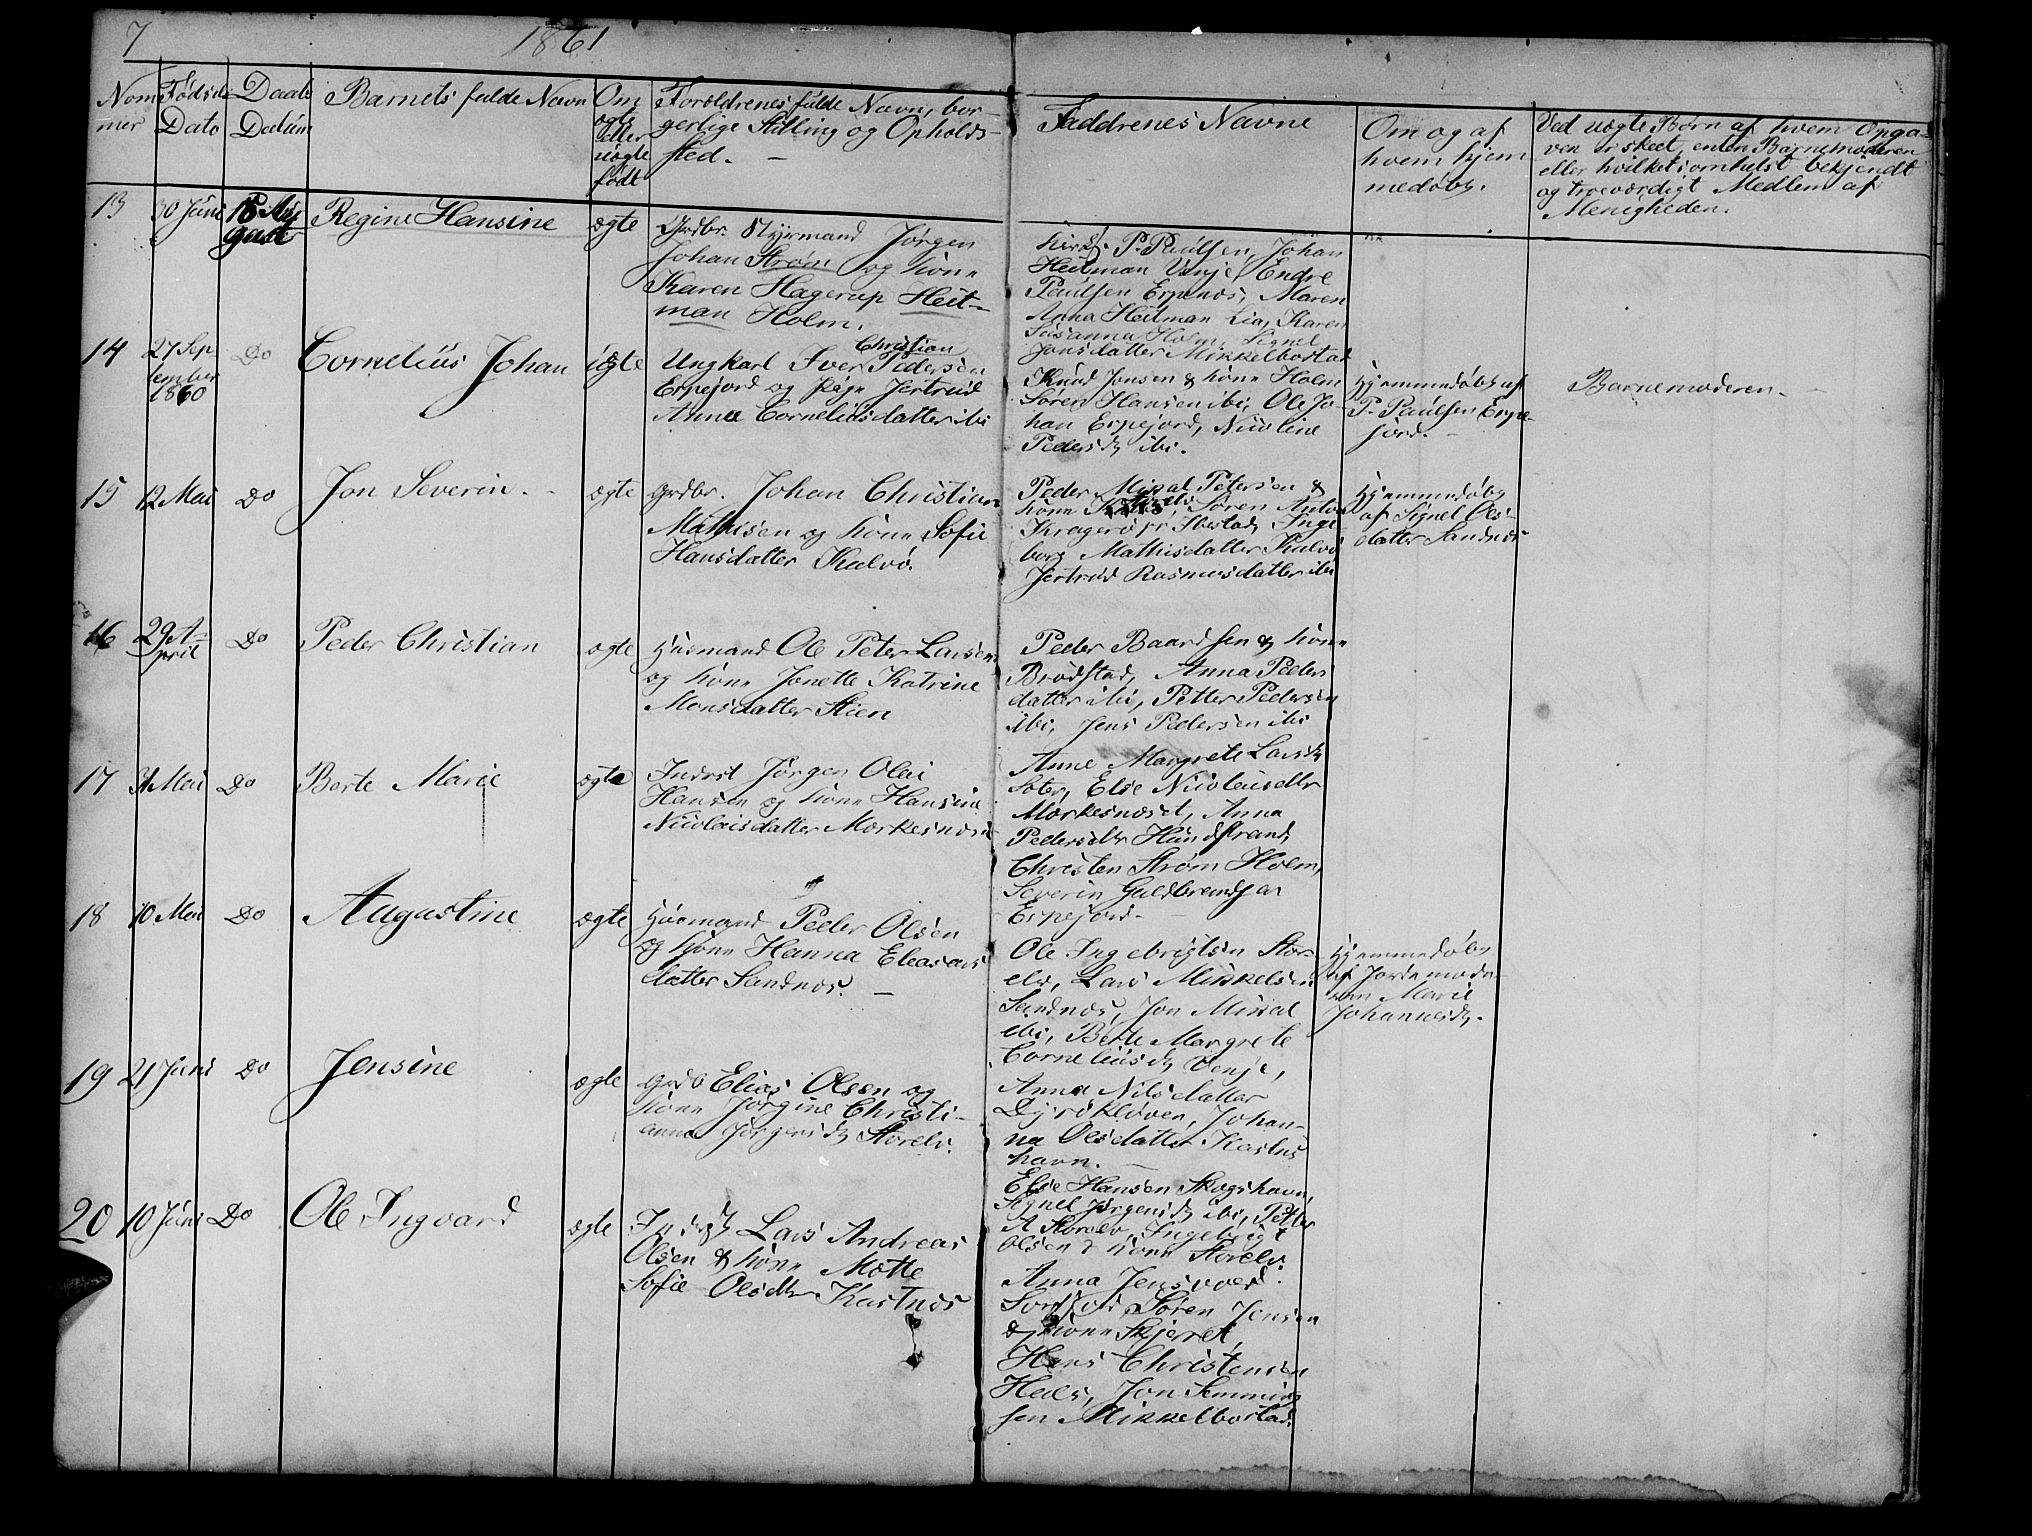 7
1861
Nom
mer
Føds
Dato
Daab
Datúm
Barnets fulde Navn
Om
ægte
eller
uægte
født
Forældrenes fúlde Navn, bor
gerlige Stilling og Opholds-
sted. -
Faddrenes Navne
Om og af
hvem hjem
medøbt.
Ved uægte Børn af hvem Opga-
ven er skeet, enten Barnemoderen
eller hvilketsomhelst bekjendt
og troeværdigt Medlem af
Menigheden.
13
30 Júni
18 Aú
gust
Regine Hansine
ægte
Grdbr. Styrmand Jørgen
Johan Strøm og kone
Karen Hagerup Heit-
man Holm.
P. Paulsen, Johan
Heitman Vinje, Endre
Paulsen Erpenæs, Maren
Anna Heitman Lia, Karen
Susanna Holm, Signel
Jonsdatter Mikkelbostad
14
27 Sep
tember
1860
Do
Cornelius Johan
úægte
Christian
Ungkarl Iver Pedersen
Erpejord og Pige Jertrud
Anna Corneliusdatter ibi
Knúd Jonsen & kone Holm
Søren Hansen ibi, Ole Jo-
han Erpejord, Nicoline
Pedersd ibi.
Hjemmedøbt af
P. Paulsen Erpe-
jord.
Barnemoderen.
15
12 Mai
Do
Jon Severin.
ægte
Grdbr. Johan Christian
Mathisen og kone Sofie
Hansdatter Kalvø.
Peder Missal Petersen &
kone Storelv, Søren Anton
Kragerø Ibestad, Inge-
borg Mathisdatter Kalvø
Jertrud Rasmusdatter ibi
Hjemmedøbt
af Signel Ols-
datter Sandnæs
16
29 A-
pril
Do
Peder Christian
ægte
Húsmand Ole Peter Larsen
og kone Jonette Katrine
Monsdatter Stien
Peder Baardsen & kone
Brødstad, Anna Peders
datter ibi, Petter Pedersen
ibi, Jens Pedersen ibi
17
31 Mai
Do
Berte Marie
ægte
Inderst Jørgen Olai
Hansen og kone Hansine
Nicolaisdatter Mørkesnæset
Anne Margrete Larsd
Elise Nicolaisdtr
Mørkesnæset, Anna
Pedersdtr Húndstrand,
Christen Strøm Holm,
Severin Guldbrandsen
Erpejord.
18
10 Mai
Do
Augustine
ægte
Húsmand Peder Olsen
og kone Hanna Eleasars
datter Sandnæs. -
Ole Ingebrigtsen Stor-
elv, Lars Mikkelsen
Sandnæs, Jon Missal
ibi, Berte Margrete
Corneliusd Vinje,
Hjemmedøbt
af Jordemode-
ren Marie
Johannesd.
19
21 Júni
Do
Jensine
ægte
Grdb Elias Olsen og
kone Jørgine Christi-
anna Jørgensd Storelv.
Anna Nilsdatter
Dyrøkløven, Johan-
na Olsdatter Kastnes
havn. -
Else Hansen Skogshavn,
Signel Jørgensd ibi, Petter
A Storelv, Ingebrigt
Olsen & kone Storelv.
20
10 Júni
Do
Ole Ingvard
ægte
Inderst Lars Andreas
Olsen & kone Mette
Sofie Olsdtr Kastnæs
Anna Jensvold.
Sørfjord, Søren Jensen
& kone Skjerret,
Hans Christensen
Hals, Jon Semming
sen Mikkelbostad.